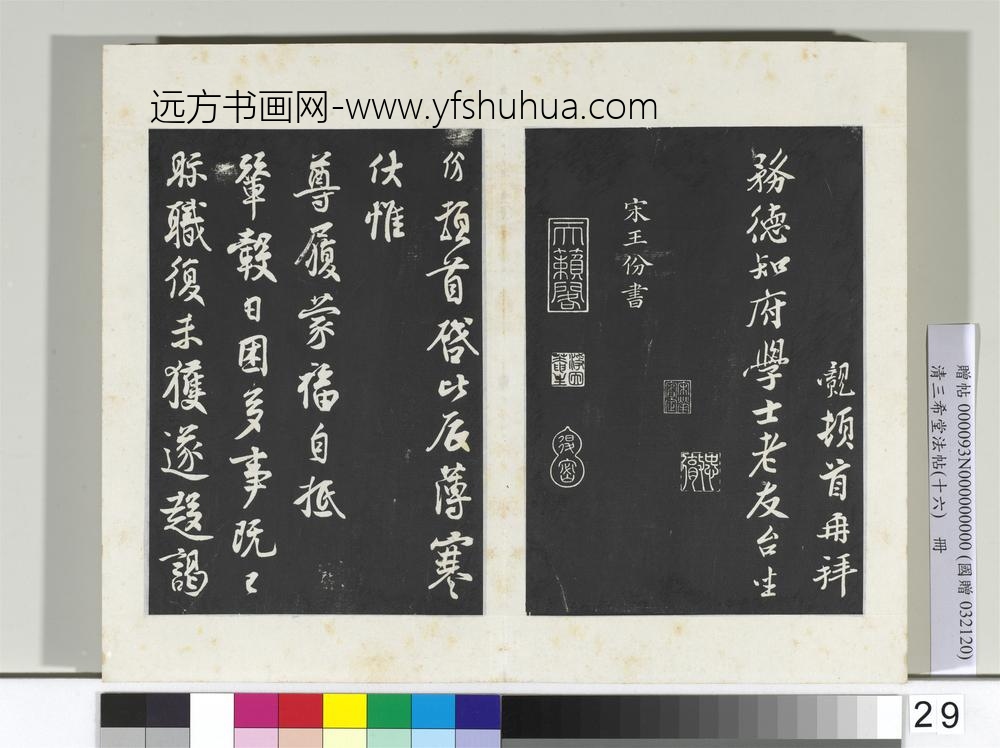 远方书画网-www.yfshuhua.com
觀頓首再拜
務德知府學士老友台坐
宋王份書
天籟閣
份頓首啓比辰薄寒
伏惟
尊履蒙福自抵
輦轂日困多事既已
眎職復未獲遂趍謁
贈帖 000093N000000000 (國贈 032120)
清三希堂法帖(十六) 冊
29